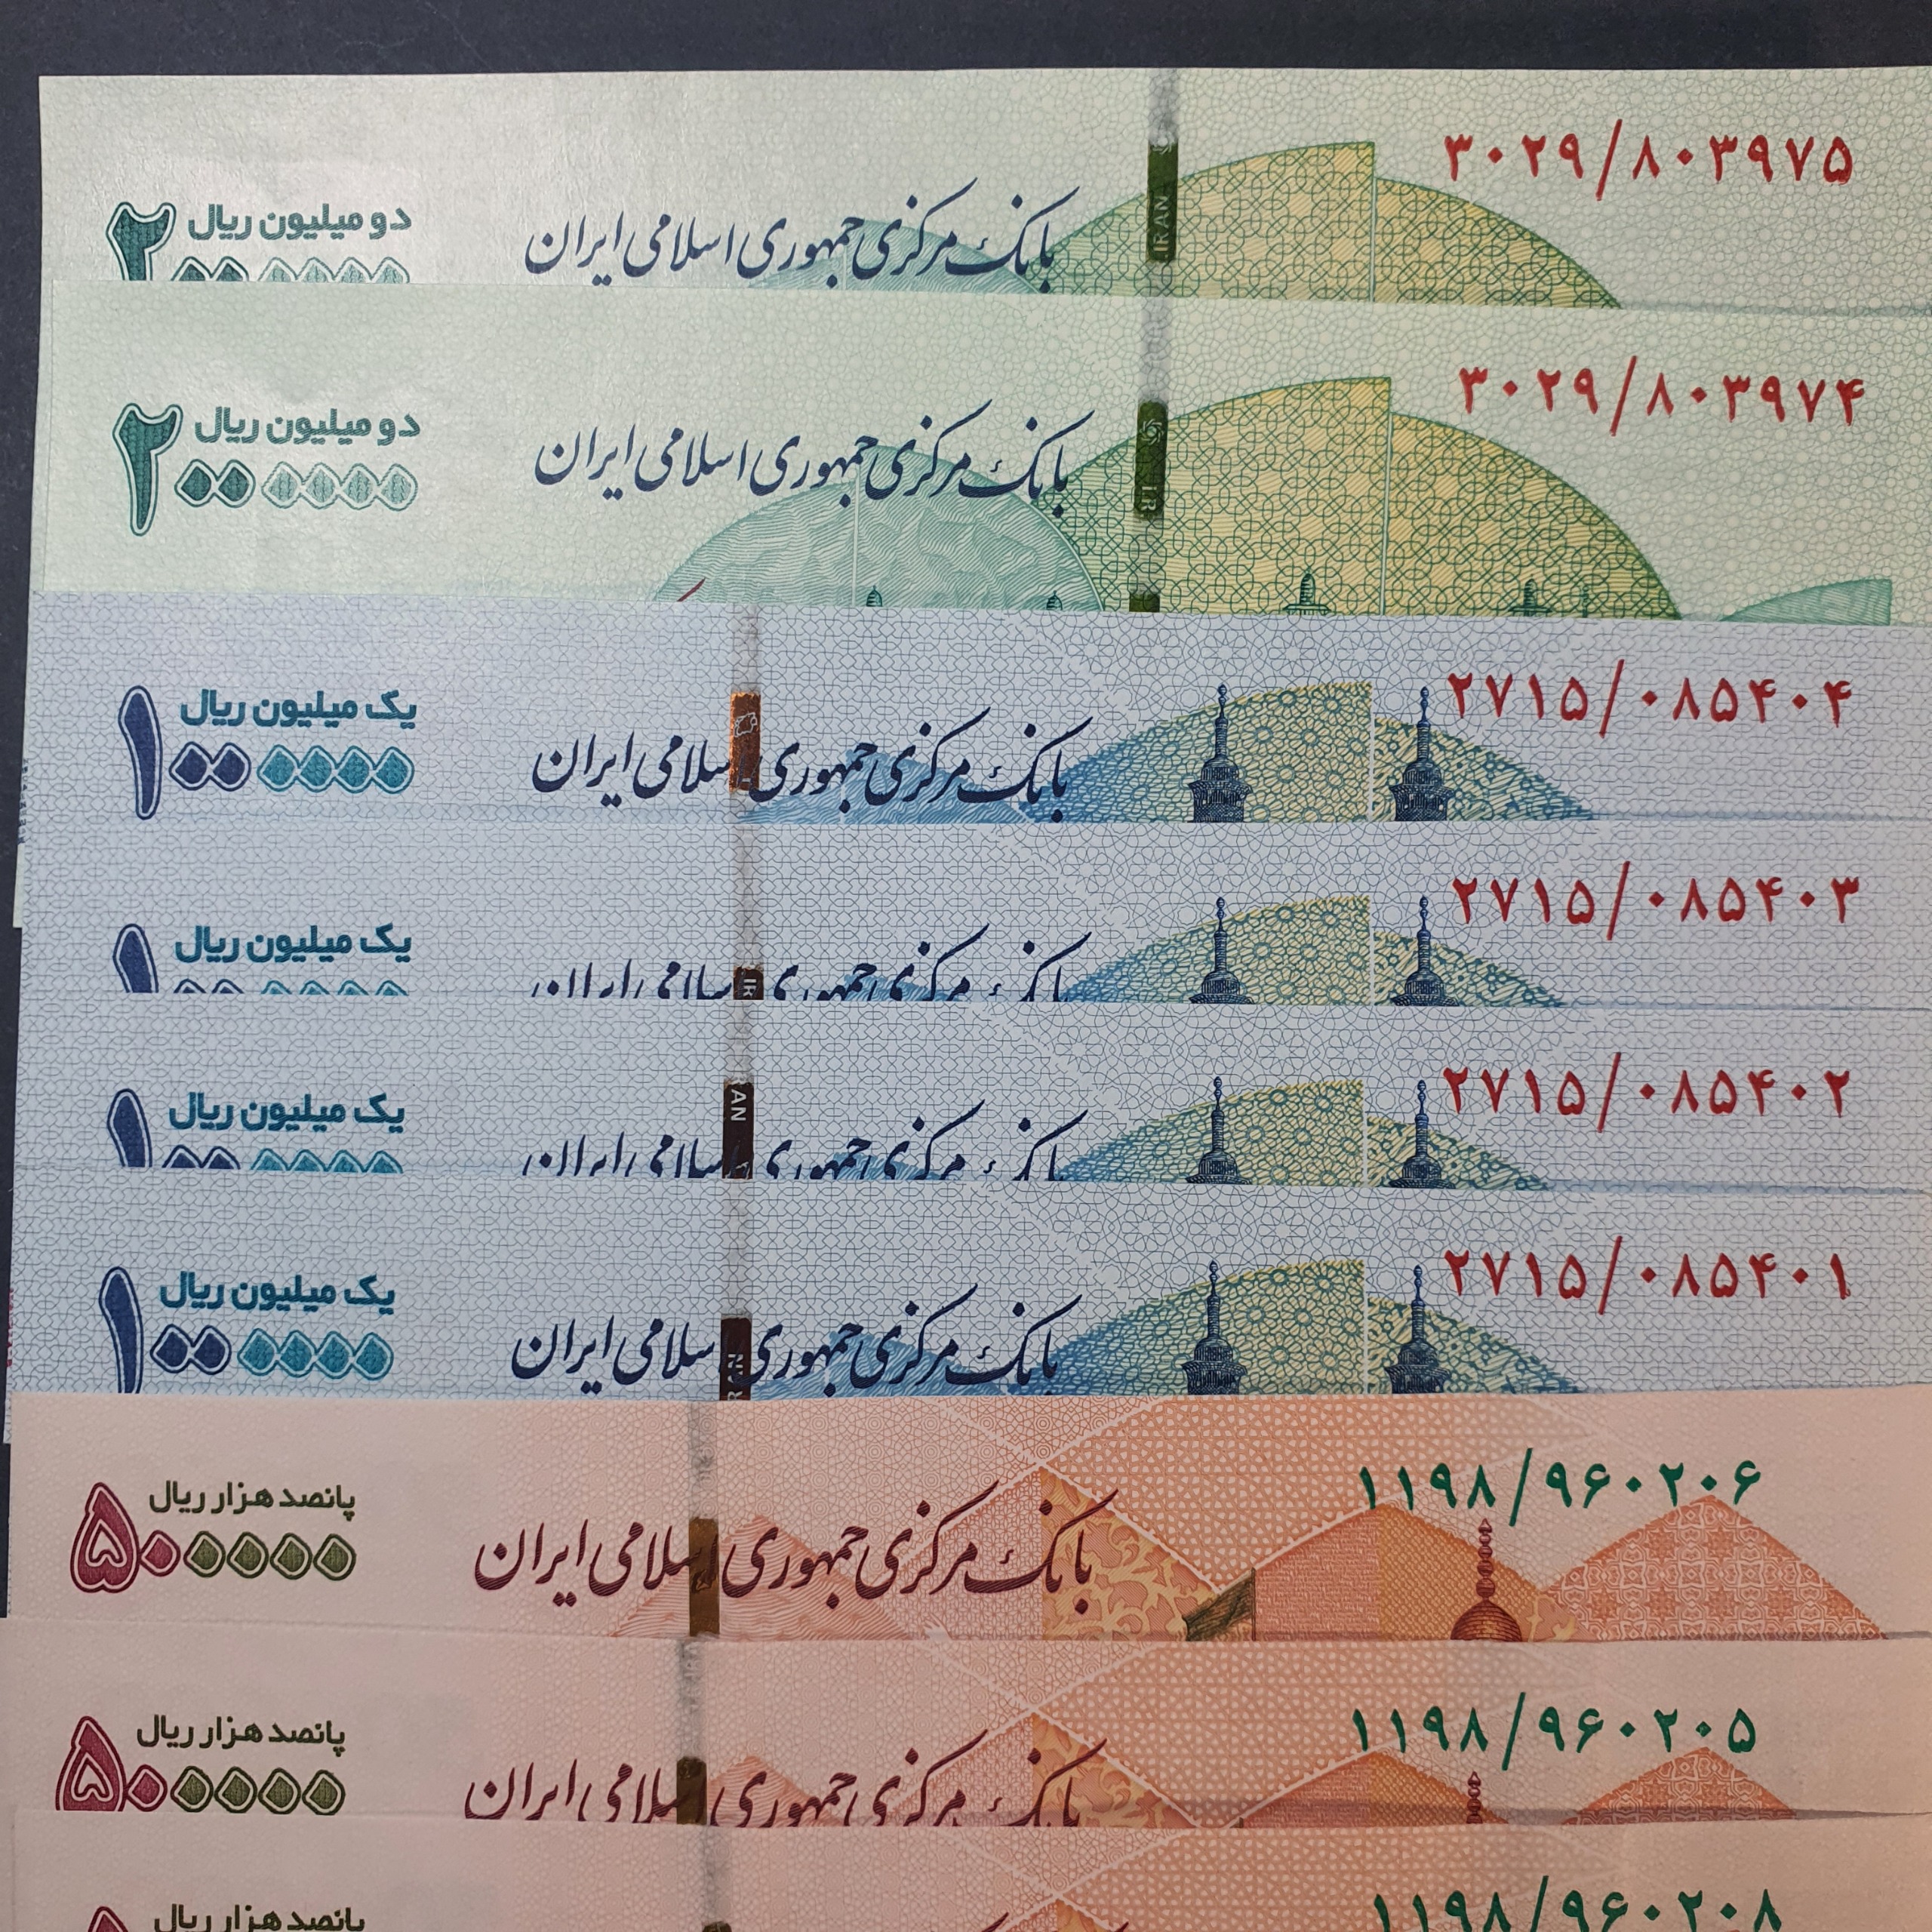 ۳۰۲۹/۸۰۳۹۷۵
دو میلیون ریال
۲۰۰۰۰۰۰
بانک مرکزی جمهوری اسلامی ایران
IRAN
۳۰۲۹/۸۰۳۹۷۴
دو میلیون ریال
۲۰۰۰۰۰۰
بانک مرکزی جمهوری اسلامی ایران
IR
۲۷۱۵/۰۸۵۴۰۴
یک میلیون ریال
۱۰۰۰۰۰۰
بانک مرکزی جمهوری اسلامی ایران
۲۷۱۵/۰۸۵۴۰۳
یک میلیون ریال
۱۰۰۰۰۰۰
بانک مرکزی جمهوری اسلامی ایران
IR
۲۷۱۵/۰۸۵۴۰۲
یک میلیون ریال
۱۰۰۰۰۰۰
بانک مرکزی جمهوری اسلامی ایران
AN
۲۷۱۵/۰۸۵۴۰۱
یک میلیون ریال
۱۰۰۰۰۰۰
بانک مرکزی جمهوری اسلامی ایران
RAN
۱۱۹۸/۹۶۰۲۰۶
پانصد هزار ریال
۵۰۰۰۰۰
بانک مرکزی جمهوری اسلامی ایران
۱۱۹۸/۹۶۰۲۰۵
پانصد هزار ریال
۵۰۰۰۰۰
بانک مرکزی جمهوری اسلامی ایران
۱۱۹۸/۹۶۰۲۰۸
پانصد هزار ریال